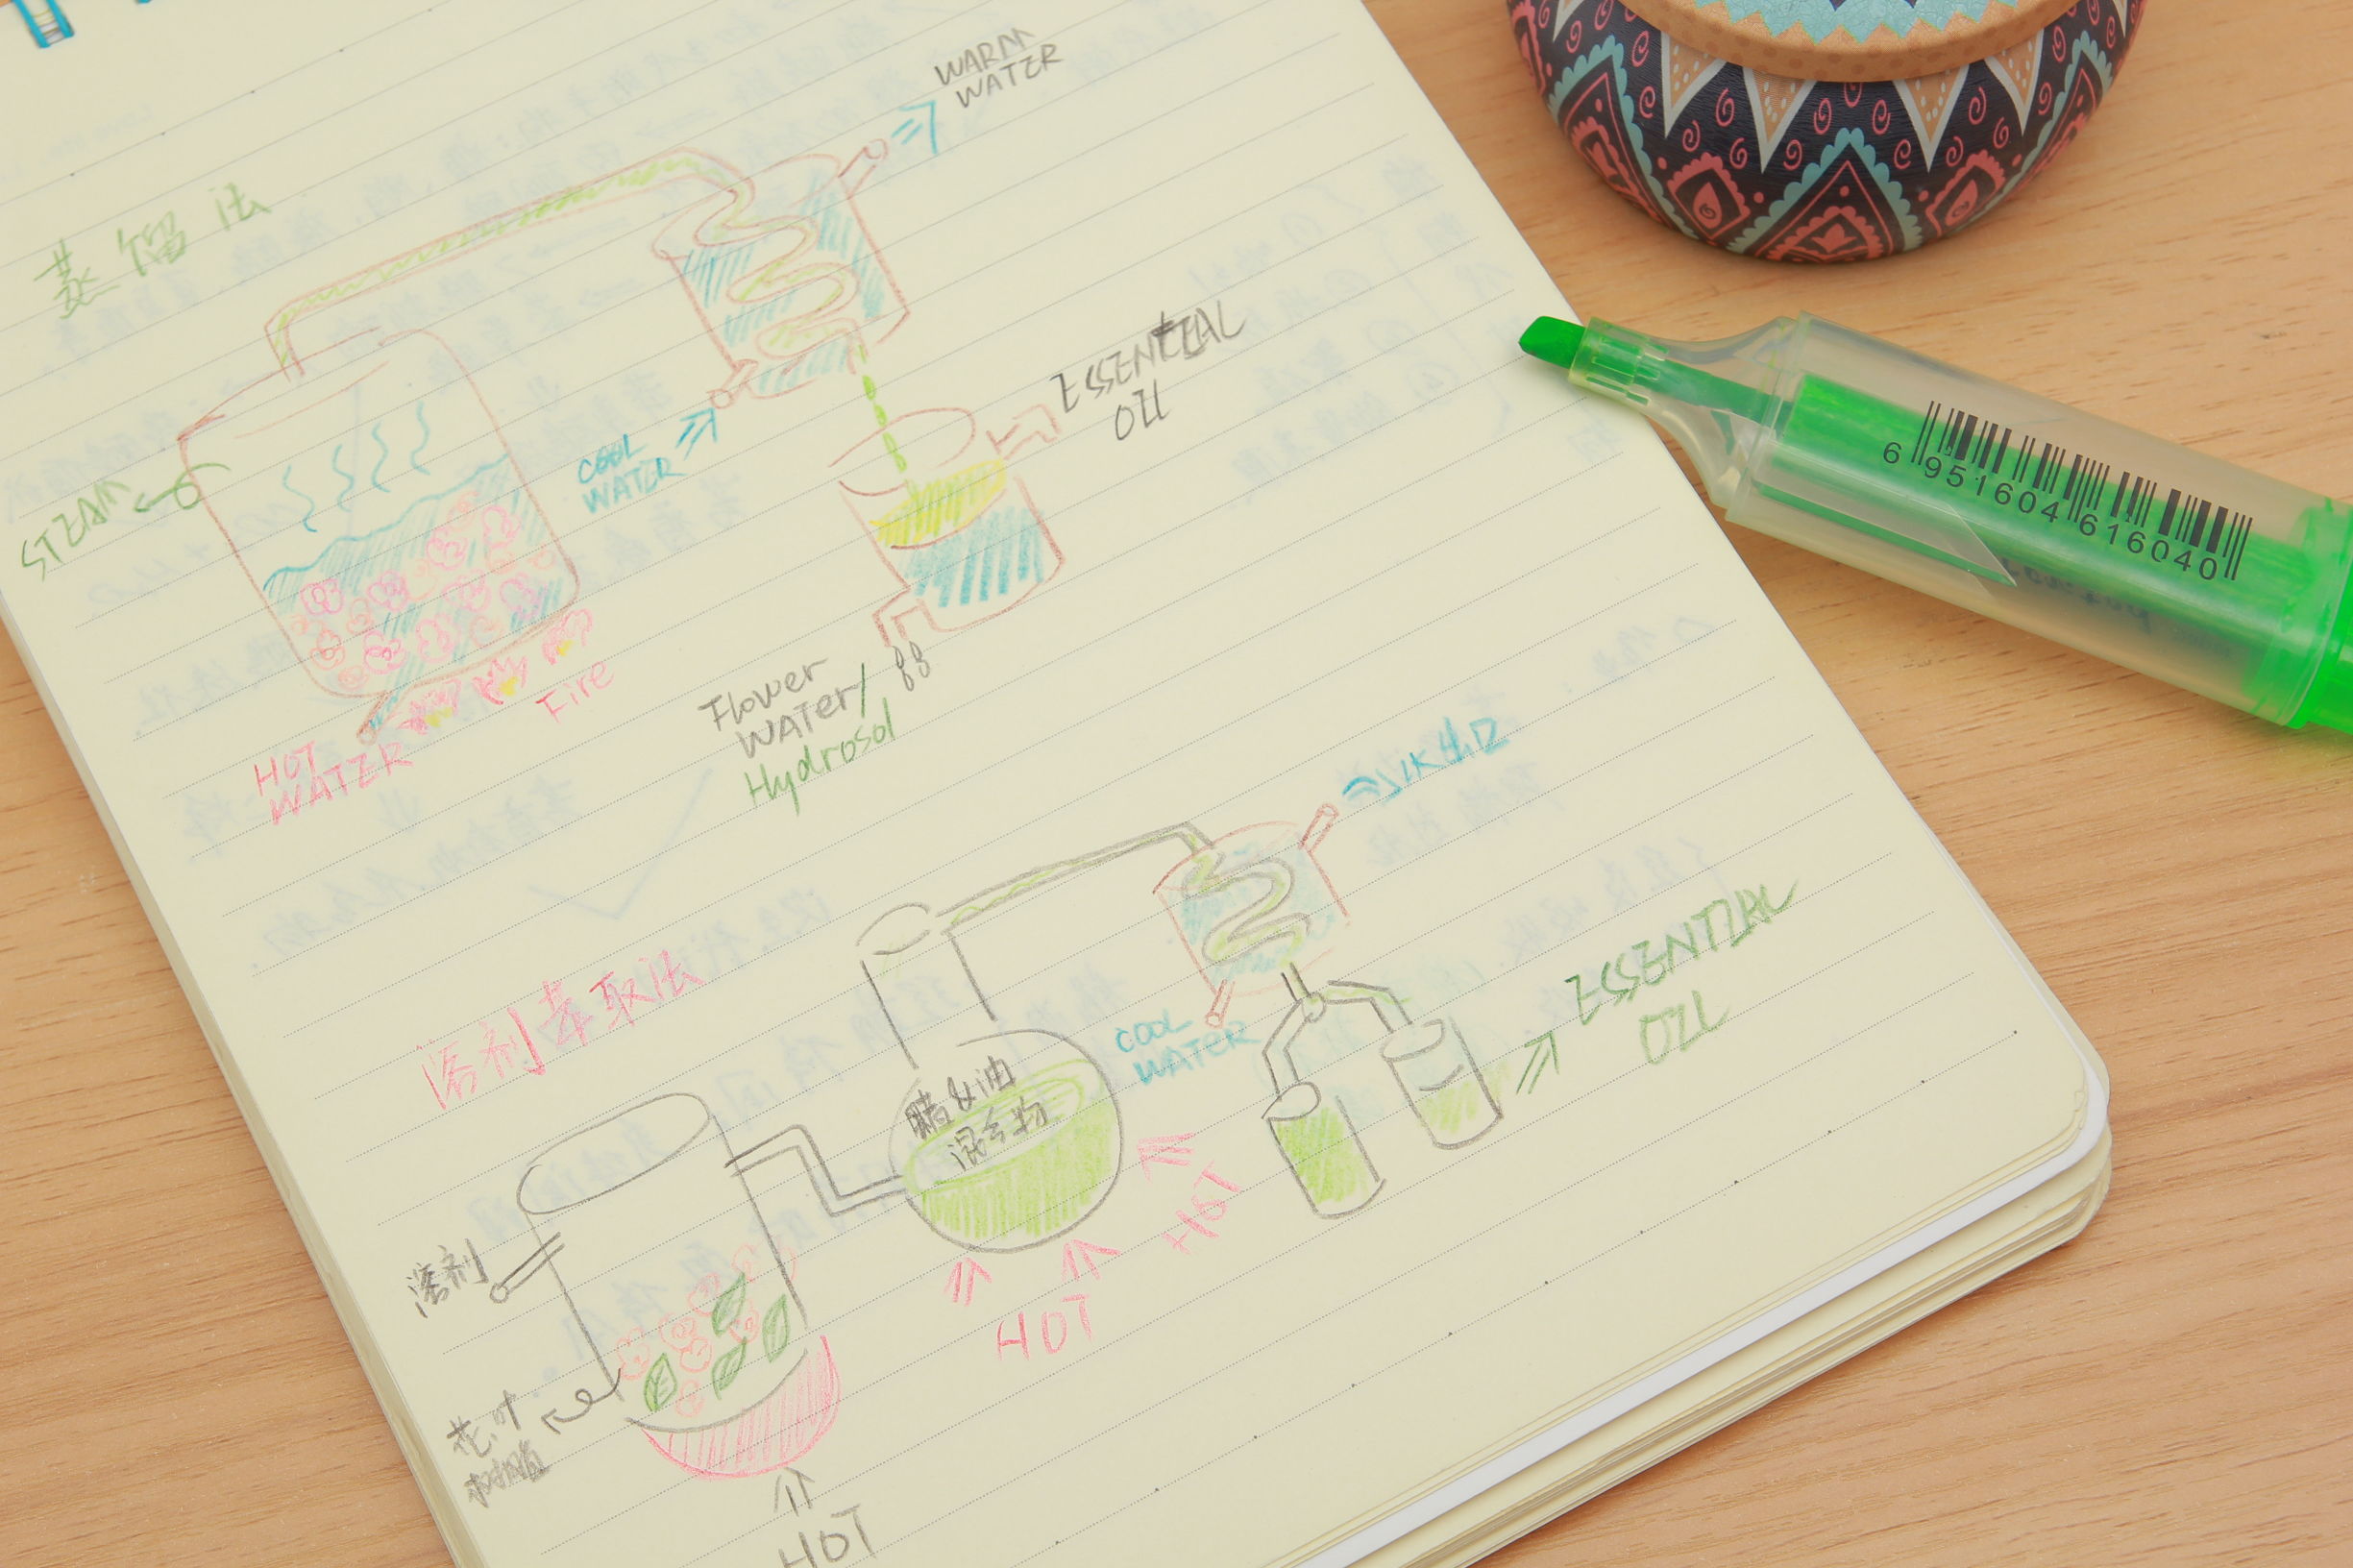 WARM
WATER
蒸馏法
STEAM
COOL
WATER
ESSENTIAL
OIL
Fire
HOT
WATER
Flower
WATer/
Hydrosol
水出口
溶剂萃取法
ESSENTIAL
OIL
COOL
WATER
腊&油
混合物
HOT
HOT
溶剂
花、叶
树脂
HOT
6 951604 616040